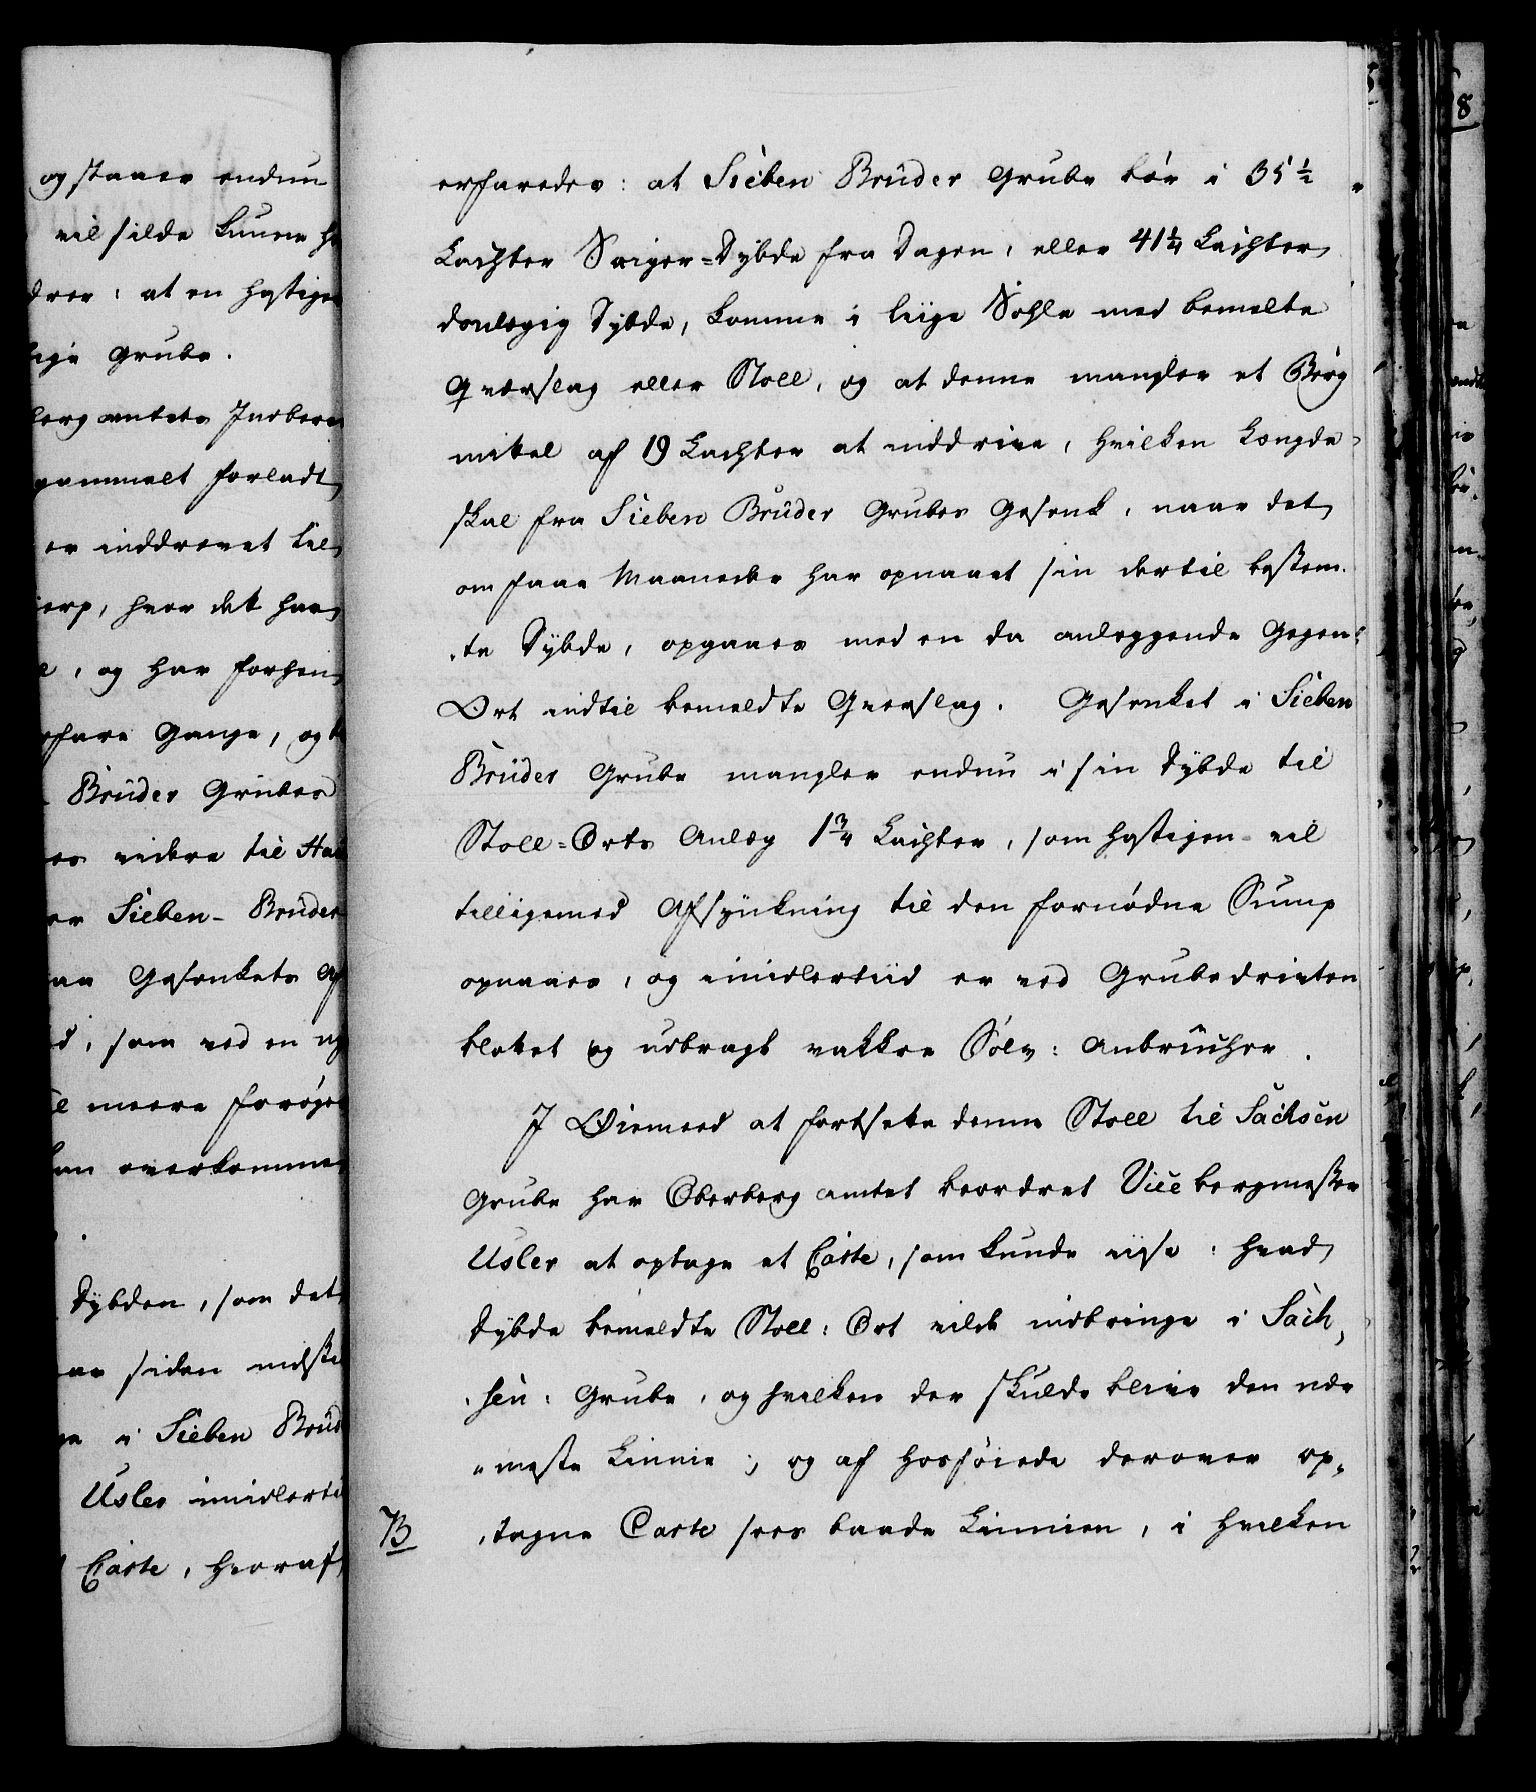 og staaer endnu
vil silde kunne
drer: at en hastigen
Grube.
berg amtets Indberet
gammelt forladt
er inddrevet til
hvor det har
, og har forhen
erfare Gange, og
Brüder Grubes
videre til
er Sieben- Brüder
Gesenkets
, som ved en
meere forøge
kan overkomme
Dybden, som det
siden
i Sieben Brüd
Usler imidlerti
Carte, hvoraf
erfaredes: at Sieben Brüder Grube bør i 35½
Lachter Saiger=Dybde fra Dagen, eller 41¼ Lachter
donlægig Dybde, komme i liige Sohle med bemelte
Qverslag eller Stoll, og at denne mangler et Berg
mitel af 19 Lachter at inddrive, hvilken Længde
skal fra Sieben Brüder Grubes Gesenk, naar det
om faae Maaneder har opnaaet sin dertil bestem-
-te Dybde, opgaaes med en da anleggende Gegen-
Ort indtil bemeldte Qverslag. Gesenket i Sieben
Brüder Grube mangler endnu i sin Dybde til
Stoll=Orts Anlæg 1¾ Lachter, som hastigen vil
tilligemed Afsynkning til den fornødne Sump
opnaaes, og imidlertiid er ved Grubedriften
blotet og udbragt vakkre Sølv: Anbrücher.
I Øiemeed at fortsette denne Stoll til Sachsen
Grube har Oberberg amtet beordret Vice bergmester
Usler at optage et Carte, som kunde viise: hvad
Dybde bemeldte Stoll: Ort vilde indbringe i Sach,
,sen: Grube, og hvilken der skulde blive den nær
"meste Linnie; og af hosføiede derover op,
B ,tagne Carte sees baade Linnien, i hvilken
8